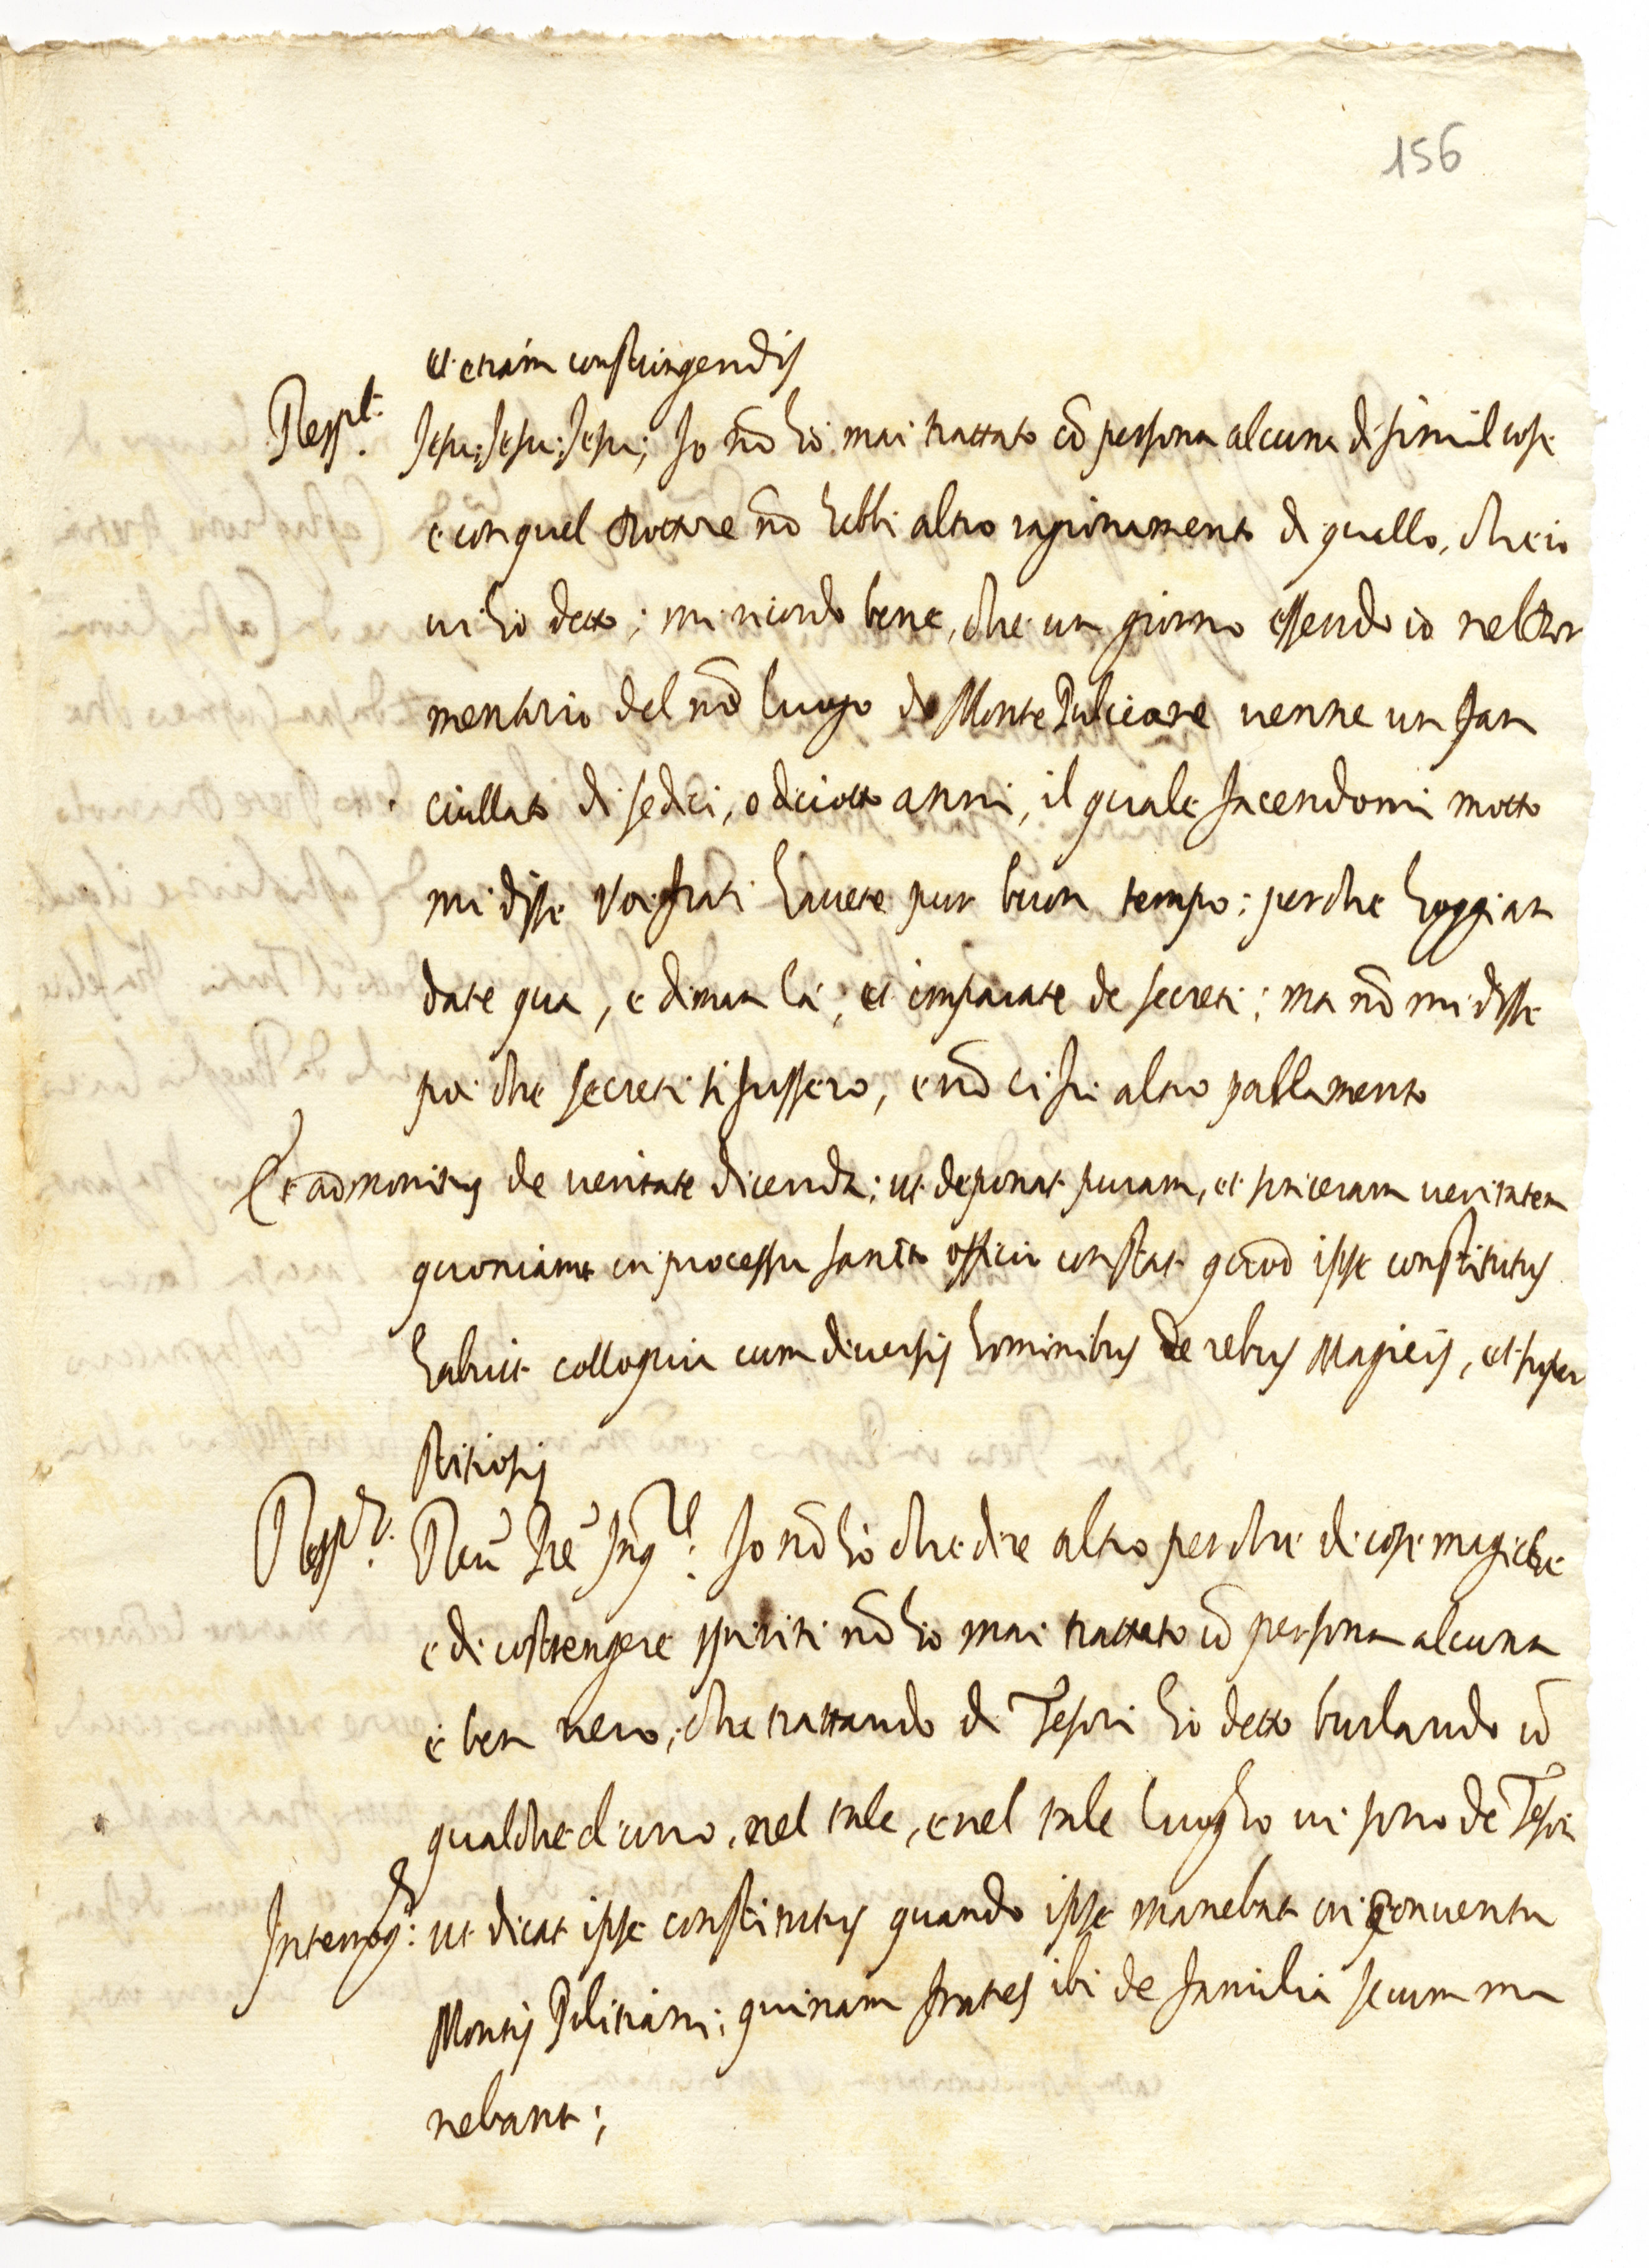 156
et etiam constringendis
Resp.t Jesu; Jesu; Jesu; Io nō hò mai trattato cō persona alcuna di simil cose
e con quel Dottore nō hebbi altro ragionamento di quello, che io
vi hò detto; mi ricordo bene, che un giorno essendo io nel Dor
mentorio del nr̄o luogo di Monte Pulciane venne un fan
ciullato di sedici, o diciotto anni, il quale facendomi motto
mi disse voi frati havete pur buon tempo; perche hoggi an
date qua, e diman là; et imparate de secreti; ma nō mi disse
poi che secreti si fussero, e nō ci fu altro parlamento
Et admonitus de veritate dicenda; ut deponat puram, et sinceram veritatem
quoniam in processu sancto officii constat quod ipse constitutus
habuit colloquia cum diversis hominibus de rebus Magicis, et super
stitiosis
Resp.t Reu.̄ Pr̄e Inq.re; Io nō hò che dire altro perche di cose magiche
e di costrengere spiriti nō hò mai trattato cō persona alcuna
è ben vero; che trattando di Tesori hò detto burlando cō
qualched'uno, nel tale, e nel tale luogho vi sono de Tesori
Interrog.s: ut dicat ipse constitutus quando ipse manebat in conventu
Montis Politiani; quinam fratres ibi de familia secum ma
nebant;